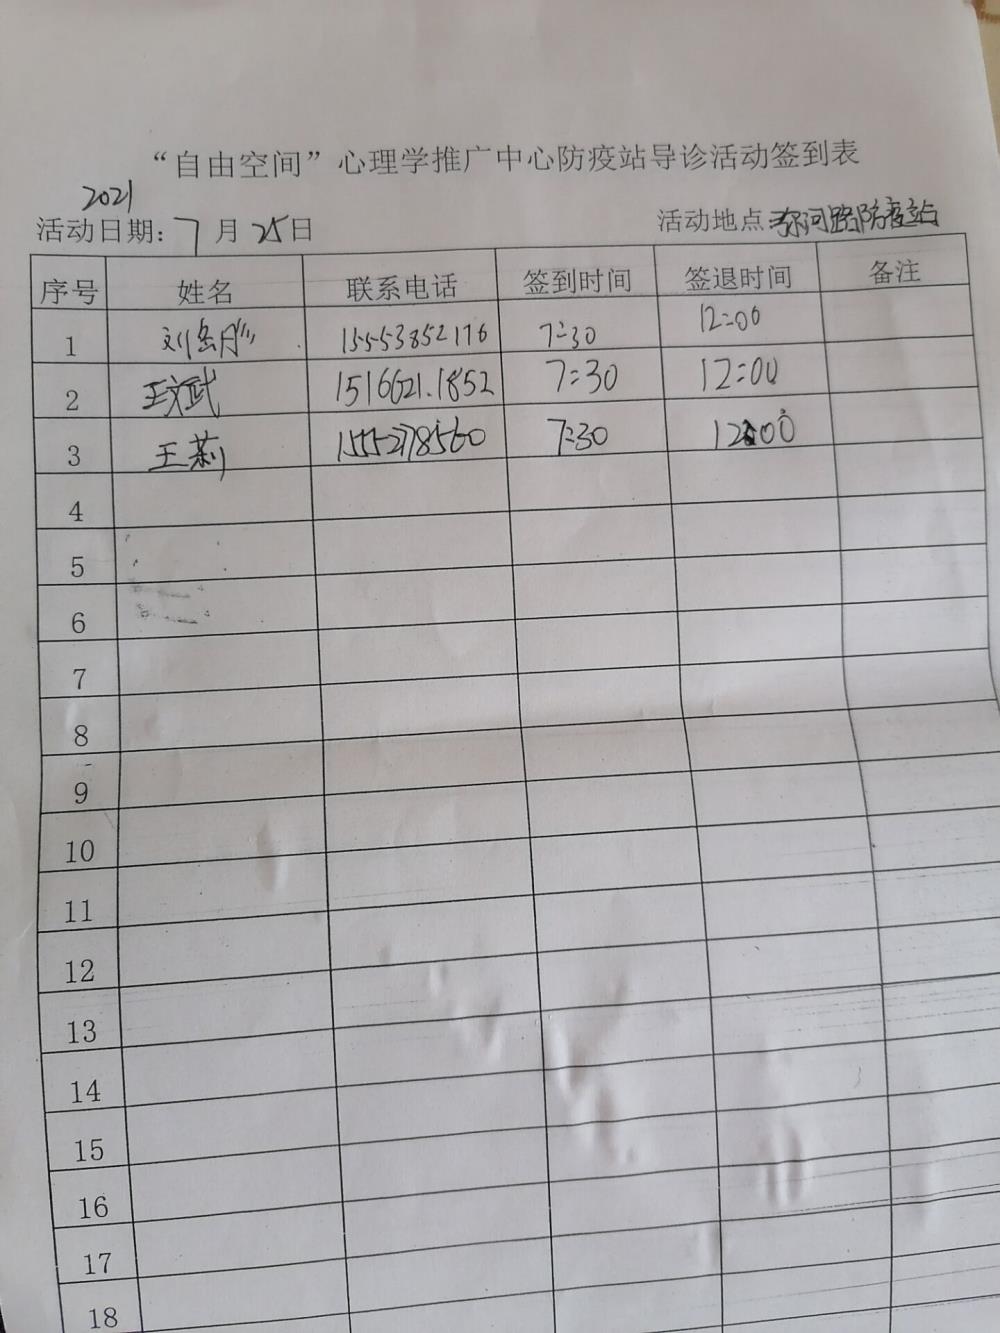 “自由空间”心理学推广中心防疫站导诊活动签到表
2021
活动日期: 7月25日 活动地点 弥河路防疫站
序号 姓名 联系电话 签到时间 签退时间 备注
1 刘 15553852176 7:30 12:00
2 王文武 1516621.1852 7:30 12:00
3 王莉 1555278560 7:30 12:00
4
5
6
7
8
9
10
11
12
13
14
15
16
17
18